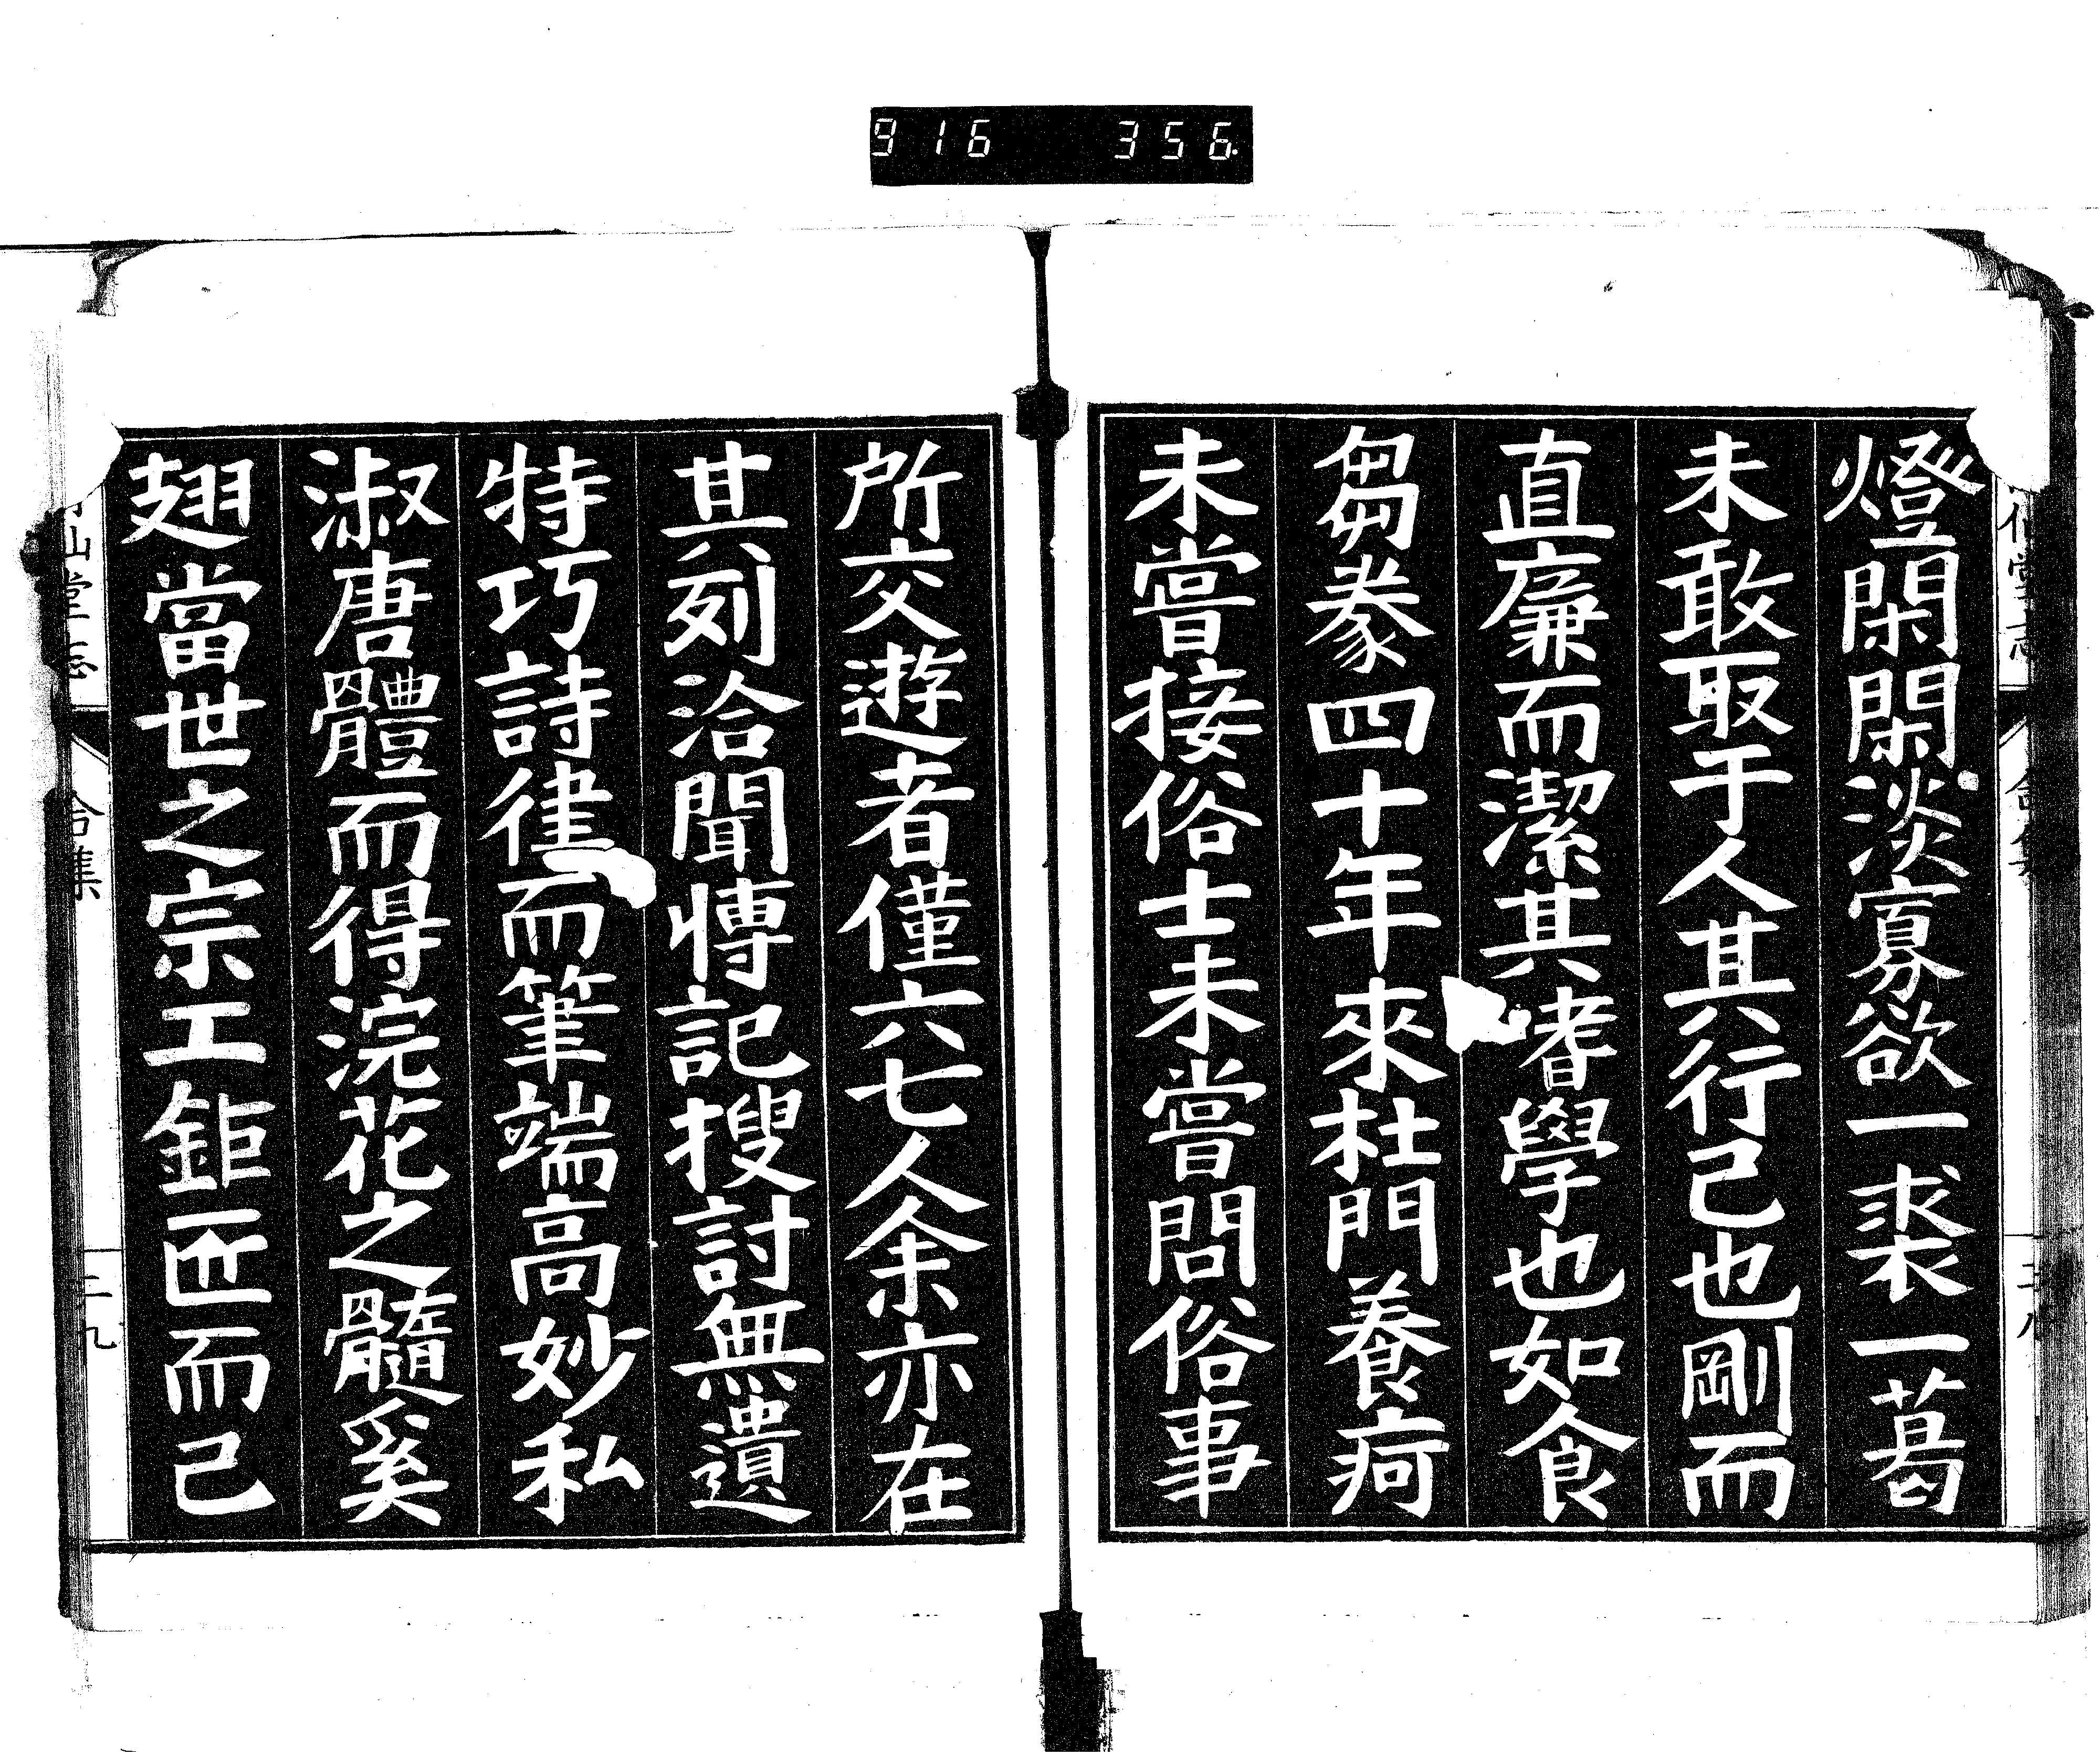 916 356
燈閑閑淡寡欲一裘一葛
未敢取于人其行己也剛而
直廉而潔其耆學也如食
芻豢四十年來杜門養疴
未嘗接俗士未嘗問俗事
所交遊者僅六七人余亦在
其列洽聞愽記搜討無遺
特巧詩律而筆端高妙私
淑唐體而得浣花之髓奚
翅當世之宗工鉅匠而已
山堂志
合集
二九